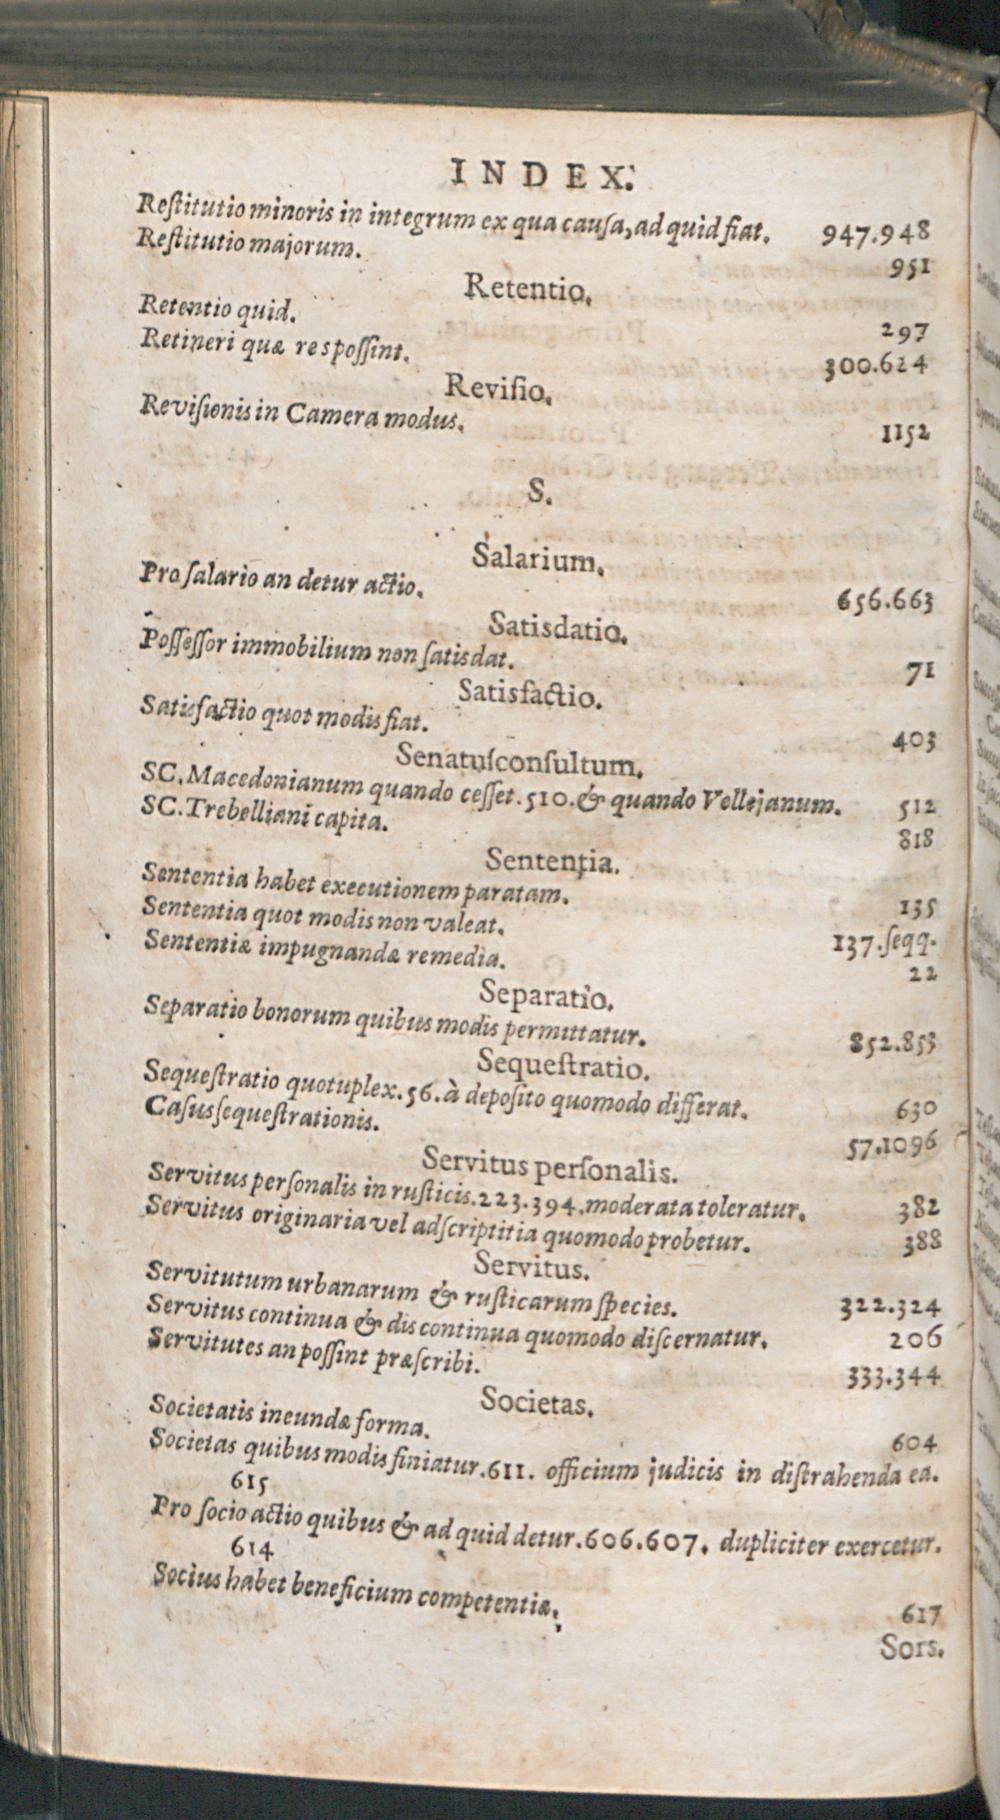 INDEX.
Reſtitutio minoris in integrum ex qua cauſa, ad quid fiat. 947.948
Reſtitutio majorum. 951
Retentio.
Retentio quid. 297
Retineri quæ res poſſint. 300.624
Reviſio.
Reviſionis in Camera modus. 1152
S.
Salarium.
Pro ſalario an detur actio. 656.663
Satisdatio.
Poſſeſſor immobilium non ſatisdat. 71
Satisfactio.
Satisfactio quot modis fiat. 403
Senatuſconſultum.
SC. Macedonianum quando ceſſet. 510. & quando Vellejanum. 512
SC. Trebelliani capita. 818
Sententia.
Sententia habet executionem paratam. 135
Sententia quot modis non valeat. 137. ſeqq.
Sententiæ impugnandæ remedia. 22
Separatio.
Separatio bonorum quibus modis permittatur. 852.853
Sequeſtratio.
Sequeſtratio quotuplex. 56. à depoſito quomodo differat. 630
Caſus ſequeſtrationis. 57.1096
Servitus perſonalis.
Servitus perſonalis in ruſticis. 223.394. moderata toleratur. 382
Servitus originaria vel adſcriptitia quomodo probetur. 388
Servitus.
Servitutum urbanarum & ruſticarum ſpecies. 322.324
Servitus continua & discontinua quomodo diſcernatur. 206
Servitutes an poſſint præſcribi. 333.344
Societas.
Societatis ineundæ forma. 604
Societas quibus modis finiatur. 611. officium judicis in diſtrahenda ea.
615
Pro ſocio actio quibus & ad quid detur. 606.607. dupliciter exercetur.
614
Socius habet beneficium competentiæ. 617
Sors.